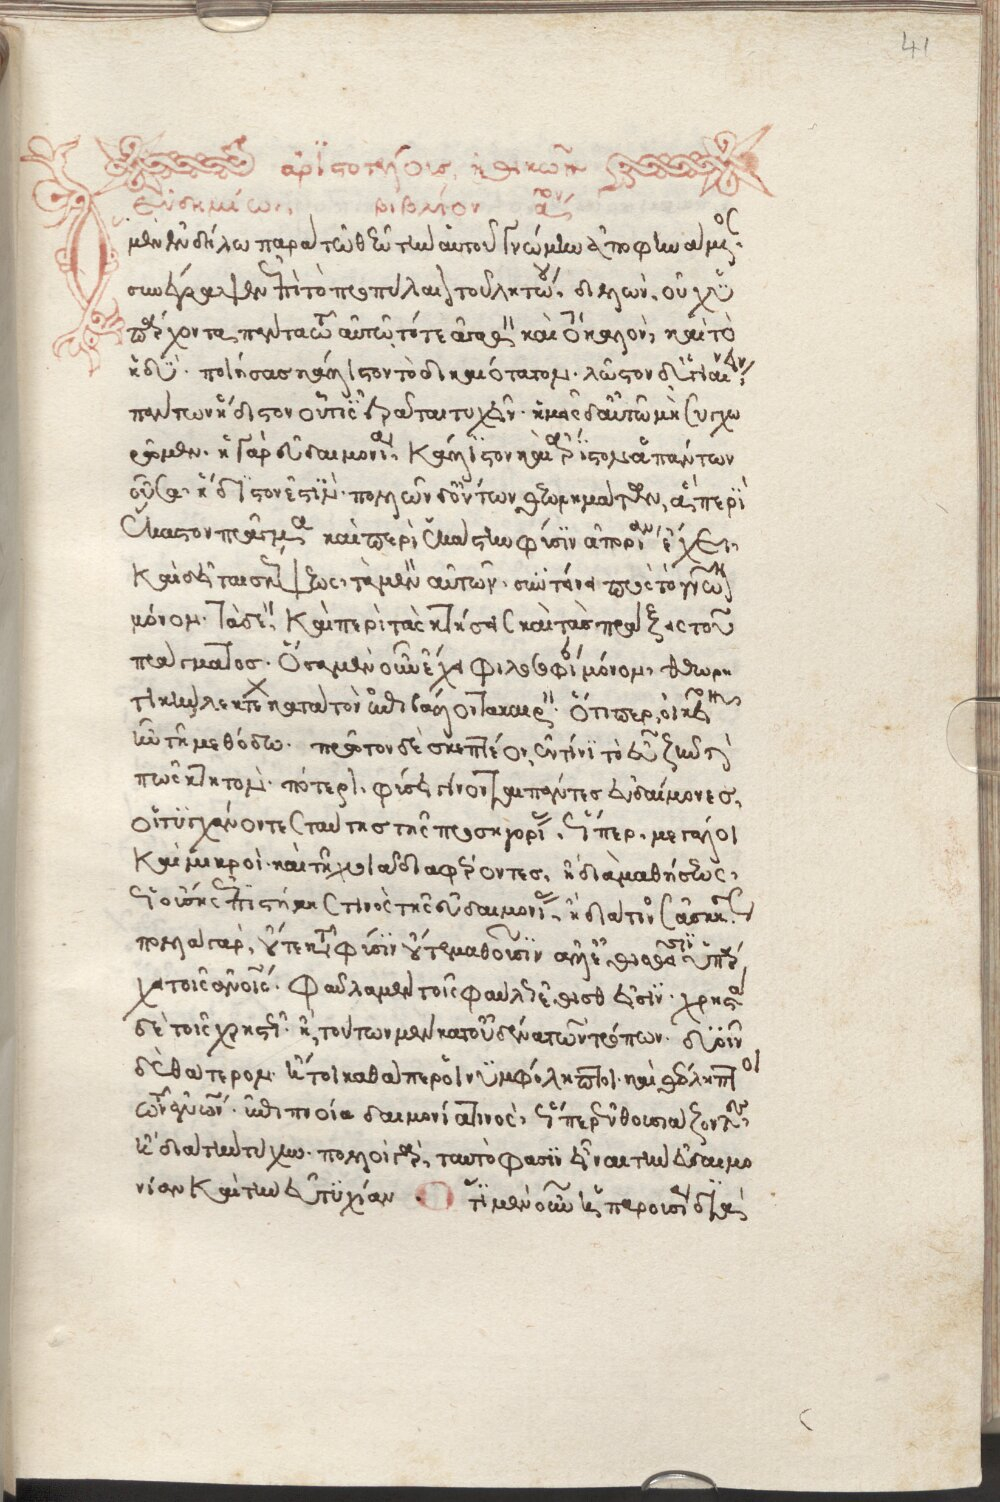 41
ἀριστοτέλους ἠθικῶν
εὐδημίων, βιβλίον α^(ον)
Ὁ
μὲν ἐν δήλω παρὰ τῶ θεῶ τὴν αὑτοῦ γνώμην ἀποφηνάμενος
συνέγραψεν ἐπὶ τὸ προπύλαιον τοῦ λητώου. διελὼν, οὐχ
ὑπάρχοντα πάντα τῶ αὐτῶ, τό τε ἀγαθὸν καὶ τὸ καλὸν, καὶ τὸ
ἡδύ. ποιήσας κάλλιστον τὸ δικαιότατον. λῶστον δ' ὑγιαίνειν,
πάντων ἥδιστον οὗ τις ἐρᾶ τὸ τυχεῖν. ἡμεῖς δ' αὐτῶ μὴ συγχω
ρῶμεν. ἡ γὰρ εὐδαιμονία, κάλλιστον καὶ ἄριστον ἁπάντων
οὖσα, ἥδιστον ἐστίν. πολλῶν δ' ὄντων θεωρημάτων, ἃ περὶ
ἕκαστον πρᾶγμα καὶ περὶ ἑκάστην φύσιν ἀπορίαν ἔχει,
καὶ δεῖται σκέψεως, τὰ μὲν αὐτῶν συντείνει πρὸς τὸ γνῶναι
μόνον. τὰ δὲ, καὶ περὶ τὰς κτήσεις καὶ τὰς πράξεις τοῦ
πράγματος. ὅσα μὲν οὖν ἔχει φιλοσοφίαν μόνον, θεωρη
τικὴν, λεκτέον κατὰ τὸν ἐπιβάλλοντα καιρόν. ὅτι περ οἰκεῖον
ἦν τῆ μεθόδω. πρῶτον δὲ σκεπτέον, ἐν τίνι τὸ εὖ ζῆν καὶ
πῶς κτητόν. πότερον φύσει γίνονται πάντες εὐδαίμονες,
οἱ τυγχάνοντες ταύτης τῆς προσηγορίας, ὥσπερ μεγάλοι
καὶ μικροὶ καὶ τὴν χροιὰν διαφέροντες, ἢ διὰ μαθήσεως,
ὡς οὔσης ἐπιστήμης τινὸς τῆς εὐδαιμονίας, ἢ διά τινος ἀσκήσεως,
πολλὰ γὰρ, οὔτε κατὰ φύσιν οὔτε μαθοῦσιν ἀλλ' ἐθισθεῖσιν ὑπάρ
χει τοῖς ἀνθρώποις. φαῦλα μὲν τοῖς φαύλως ἐθισθεῖσιν. χρηστὰ
δὲ τοῖς χρηστῶς. ἢ, τούτων μὲν κατ' οὐδένα τῶν τρόπων. δυοῖν
δὲ θάτερον. ἤτοι καθάπερ οἱ νυμφόληπτοι καὶ θεόληπτοι
τῶν ἀνθρώπων. ἐπιπνοία δαιμονίου τινὸς, ὥσπερ ἐνθουσιάζοντες,
ἢ διὰ τὴν τύχην. πολλοὶ γὰρ, ταὐτό φασιν εἶναι τὴν εὐδαιμο
νίαν καὶ τὴν εὐτυχίαν. Ὅτι μὲν οὖν ἡ παρουσία διὰ